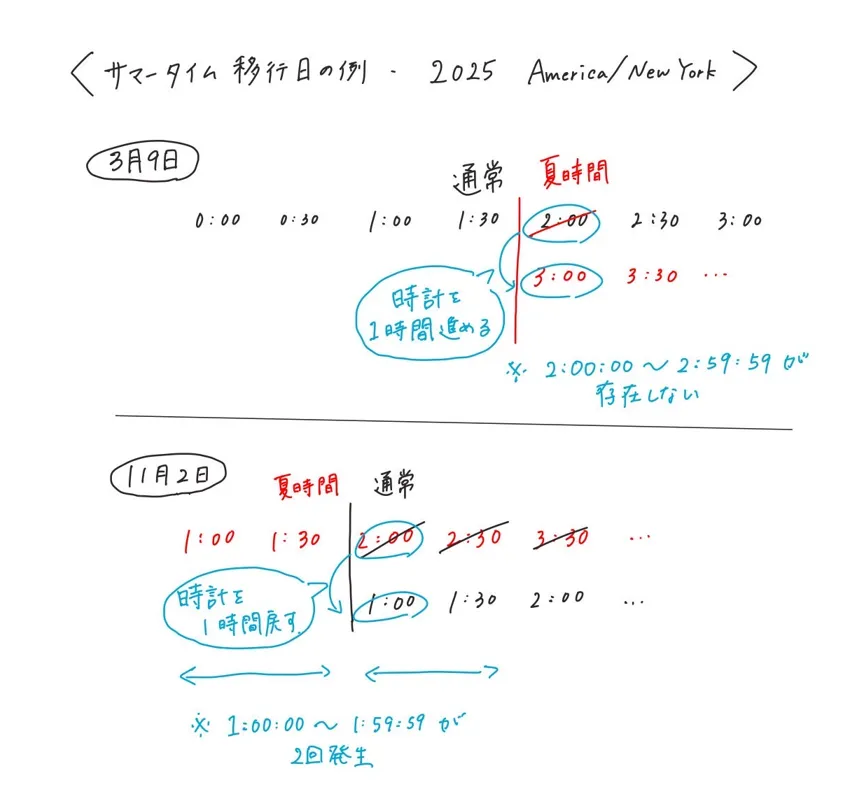 〈サマータイム移行日の例 ・ 2025 America/New York〉
3月9日
通常 夏時間
0:00 0:30 1:00 1:30 2:00 2:30 3:00
3:00 3:30 ...
時計を
1時間進める
※ 2:00:00 〜 2:59:59 が
存在しない
11月2日
夏時間 通常
1:00 1:30 2:00 2:30 3:30 ...
1:00 1:30 2:00 ...
時計を
1時間戻す
※ 1:00:00 〜 1:59:59 が
2回発生